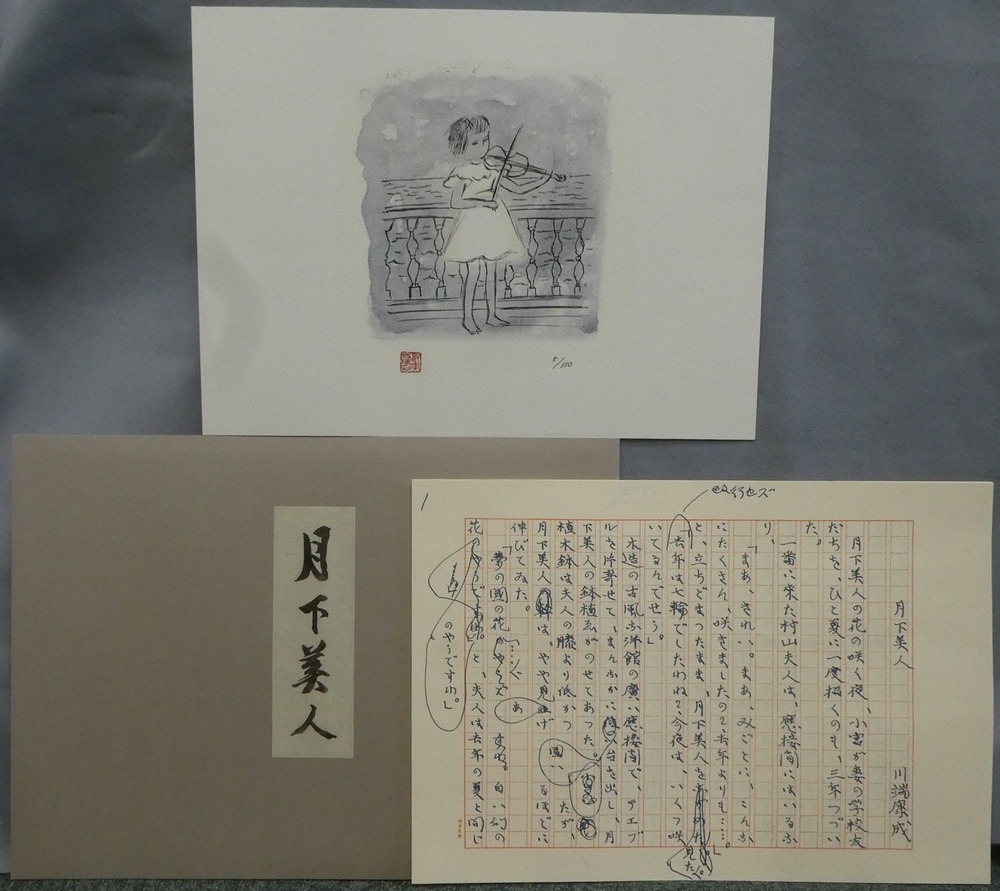 8/350
月下美人
1
改行セズ
月下美人
川端康成
月下美人の花の咲く夜、小宮が妻の学校友
だちを、ひと夏に一度招くのも、三年つづい
た。
一番に来た村山夫人は、應接間にはいるな
り、
「まあ、きれい。まあ、みごとに、こんな
にたくさん、咲きましたので去年よりも……。」
と、立ちどまつたまま、月下美人を
見た。
「去年は七輪でしたわね？今夜は、いくつ咲
いてるんでせう」
木造の古風な洋館の廣い應接間で、テエブ
ルを片寄せて、まんなかに 台を出し、月
下美人の鉢植ゑがのせてあつた。
圓い
植木鉢は夫人の膝より低かつ たが、
月下美人 は、やや見 あ げ るほどに
伸びてゐた。
「夢の國の花 白い幻の
花 と、夫人は去年の夏と同じ
のやうですわ。」